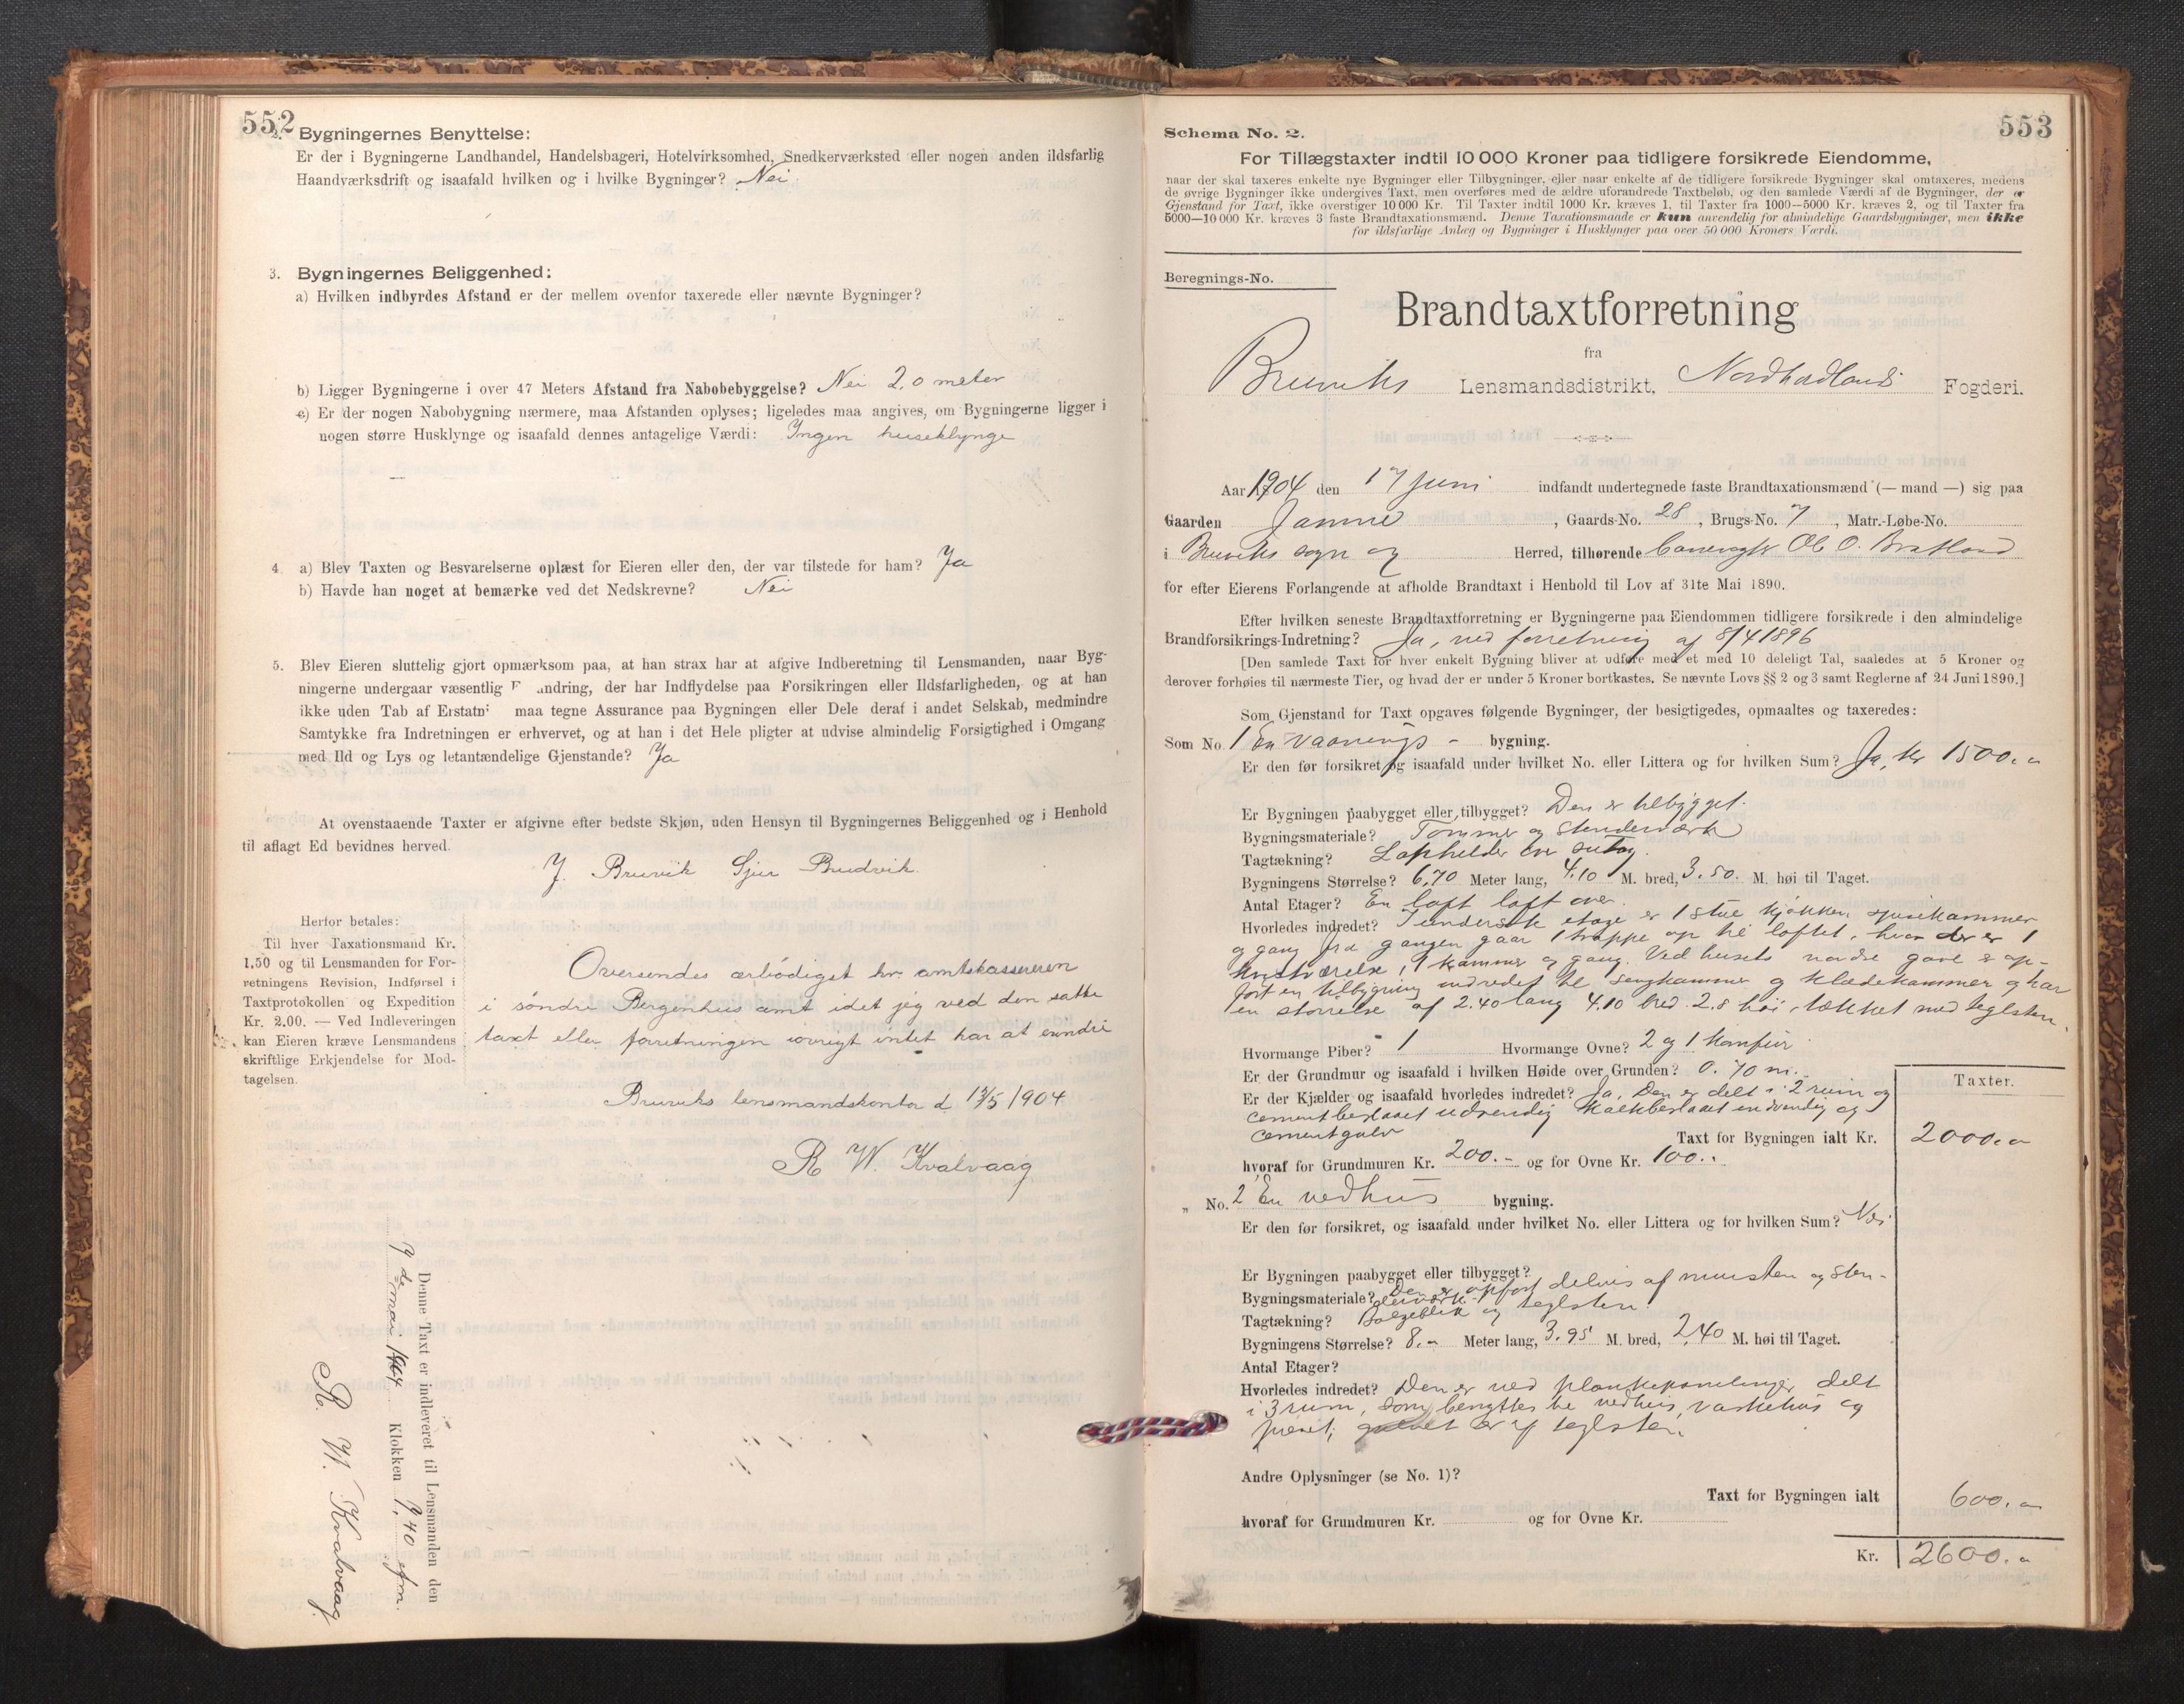 552
2. Bygningernes Benyttelse:
Er der i Bygningerne Landhandel, Handelsbageri, Hotelvirksomhed, Snedkerværksted eller nogen anden ildsfarlig
Haandværksdrift og isaafald hvilken og i hvilke Bygninger? Nei
3. Bygningernes Beliggenhed:
a) Hvilken indbyrdes Afstand er der mellem ovenfor taxerede eller nævnte Bygninger?
b) Ligger Bygningerne i over 47 Meters Afstand fra Nabobebyggelse? Nei 20 meter
c) Er der nogen Nabobygning nærmere, maa Afstanden oplyses; ligeledes maa angives, om Bygningerne ligger i
nogen større Husklynge og isaafald dennes antagelige Værdi: Ingen huseklynge
4. a) Blev Taxten og Besvarelserne oplæst for Eieren eller den, der var tilstede for ham? Ja
b) Havde han noget at bemærke ved det Nedskrevne? Nei
5. Blev Eieren sluttelig gjort opmærksom paa, at han strax har at afgive Indberetning til Lensmanden, naar Byg-
ningerne undergaar væsentlig F andring, der har Indflydelse paa Forsikringen eller Ildsfarligheden, og at han
ikke uden Tab af Erstatn maa tegne Assurance paa Bygningen eller Dele deraf i andet Selskab, medmindre
Samtykke fra Indretningen er erhvervet, og at han i det Hele pligter at udvise almindelig Forsigtighed i Omgang
med Ild og Lys og letantændelige Gjenstande? Ja
At ovenstaaende Taxter er afgivne efter bedste Skjøn, uden Hensyn til Bygningernes Beliggenhed og i Henhold
til aflagt Ed bevidnes herved.
J. Bruvik Sjur Brudvik.
Herfor betales:
Til hver Taxationsmand Kr.
1,50 og til Lensmanden for For-
retningens Revision, Indførsel i
Taxtprotokollen og Expedition
Kr. 2.00. — Ved Indleveringen
kan Eieren kræve Lensmandens
skriftlige Erkjendelse for Mod-
tagelsen.
Oversendes ærbödigst hr. amtskassereren
i söndre Bergenhus amt idet jeg ved den satte
taxt eller forretningen iövrigt intet har at erindre
Bruviks lensmandskontor d. 1904
R W. Kvalvaag
Denne Taxt er indleveret til Lensmanden den
7de mai 1904 Klokken 7,40 efm.
R. W. Kvalvaag
553
Schema No. 2.
For Tillægstaxter indtil 10 000 Kroner paa tidligere forsikrede Eiendomme,
naar der skal taxeres enkelte nye Bygninger eller Tilbygninger, eller naar enkelte af de tidligere forsikrede Bygninger skal omtaxeres, medens
de øvrige Bygninger ikke undergives Taxt, men overføres med de ældre uforandrede Taxtbeløb, og den samlede Værdi af de Bygninger, der er
Gjenstand for Taxt, ikke overstiger 10 000 Kr. Til Taxter indtil 1000 Kr. kræves 1, til Taxter fra 1000—5000 Kr. kræves 2, og til Taxter fra
5000—10 000 Kr. kræves 3 faste Brandtaxationsmænd. Denne Taxationsmaade er kun anvendelig for almindelige Gaardsbygninger, men ikke
for ildsfarlige Anlæg og Bygninger i Husklynger paa over 50 000 Kroners Værdi.
Beregnings-No.
Brandtaxtforretning
fra
Bruviks Lensmandsdistrikt, Nordhordlands Fogderi.
Aar 1904 den 17 juni indfandt undertegnede faste Brandtaxationsmænd (— mand —) sig paa
Gaarden Jamne, Gaards-No. 28, Brugs-No. 7, Matr.-Løbe-No.
i Bruviks sogn og Herred, tilhørende Ole O. Bratland
for efter Eierens Forlangende at afholde Brandtaxt i Henhold til Lov af 31te Mai 1890.
Efter hvilken seneste Brandtaxtforretning er Bygningerne paa Eiendommen tidligere forsikrede i den almindelige
Brandforsikrings-Indretning? Ja, ved forretning af 8/4 1896
[Den samlede Taxt for hver enkelt Bygning bliver at udføre med et med 10 deleligt Tal, saaledes at 5 Kroner og
derover forhøies til nærmeste Tier, og hvad der er under 5 Kroner bortkastes. Se nævnte Lovs §§ 2 og 3 samt Reglerne af 24 Juni 1890.]
Som Gjenstand for Taxt opgaves følgende Bygninger, der besigtigedes, opmaaltes og taxeredes:
Som No. 1 En vaanings - bygning.
Er den før forsikret og isaafald under hvilket No. eller Littera og for hvilken Sum? Ja, kr 1500.
Er Bygningen paabygget eller tilbygget? Den er tilbygget.
Bygningsmateriale? Tømmer og stenderværk
Tagtækning? Laphelder over sutag.
Bygningens Størrelse? 6,70 Meter lang, 4.10 M. bred, 3.50. M. høi til Taget.
Antal Etager? En loft over.
Hvorledes indredet? I underste etage er 1 stue kjøkken spisekammer
og gang fra gangen gaar 1 trappe op til loftet, hvor der er 1
kvistværelse, 1 kammer og gang. Ved husets nordre gavl er op-
fört en tilbygning indredet til sengkammer og klædekammer og har
en störrelse af 2.40 lang 4.10 bred 2.8 höi, tækket med teglsten.
Hvormange Piber? 1 Hvormange Ovne? 2 og 1 komfur
Er der Grundmur og isaafald i hvilken Høide over Grunden? 0.70 m.
Er der Kjælder og isaafald hvorledes indredet? Ja, Den er delt i 2 rum og
cementbeslaaet udvendig kalkbeslaaet indvendig og
cementgulv
Taxter.
Taxt for Bygningen ialt Kr. 2000.
hvoraf for Grundmuren Kr. 200.- og for Ovne Kr. 100.
„ No. 2 En vedhus bygning.
Er den før forsikret, og isaafald under hvilket No. eller Littera og for hvilken Sum? Nei
Er Bygningen paabygget eller tilbygget?
Bygningsmateriale? Den er opført delvis af mursten og sten-
derværk
Tagtækning? Bølgeblik og teglsten.
Bygningens Størrelse? 8. Meter lang, 3.95 M. bred, 2,40 M. høi til Taget.
Antal Etager?
Hvorledes indredet? Den er ved plankepanelinger delt
i 3 rum, som benyttes til vedhus, vaskehus og
privet; gulvet er af teglsten.
Andre Oplysninger (se No. 1)?
Taxt for Bygningen ialt 600.
hvoraf for Grundmuren Kr. og for Ovne Kr.
Kr. 2600.